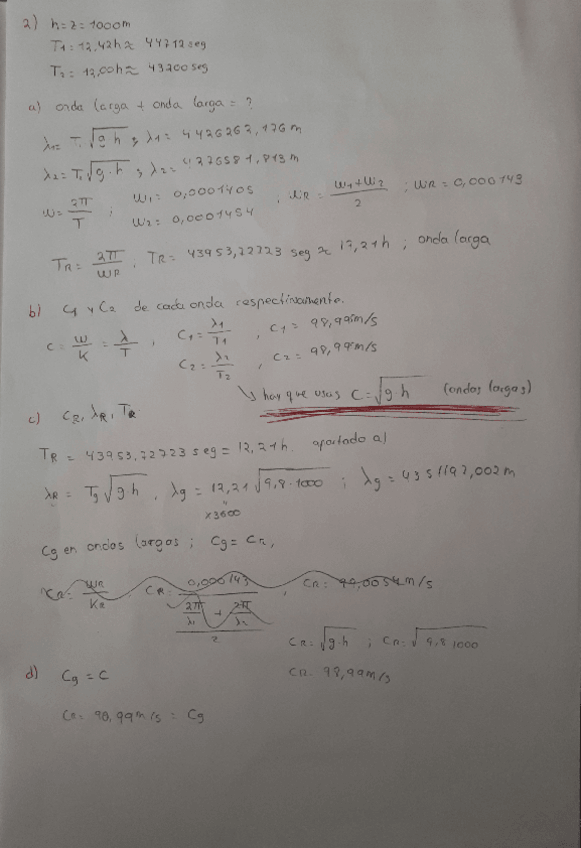 2) h=z=1000m
T₁= 12,42h ≈ 44712 seg
T₂= 12,00h ≈ 43200 seg
a) onda larga + onda larga = ?
λ₁= T₁ √g·h ; λ₁= 4426262,176 m
λ₂= T₁ √g·h ; λ₂= 4276581,813 m
ω= 2π/T ; ω₁= 0,0001405 ; ω₂= 0,0001454 ; ωR= (ω₁+ω₂)/2 ; ωR= 0,000143
TR= 2π/ωR ; TR= 43953,22723 seg ≈ 12,21h ; onda larga
b) C₁ y C₂ de cada onda respectivamente.
C= ω/K = λ/T , C₁= λ₁/T₁ , C₁= 98,99m/s
C₂= λ₂/T₂ , C₂= 98,99m/s
↳ hay que usas C=√g·h (ondas largas)
c) CR, λR, TR
TR= 43953,22723 seg= 12,21h. apartado a)
λR= Tg √g·h , λg= 12,21 √9,8·1000 ; λg= 4351197,002 m
×3600
Cg en ondas largas ; Cg= CR,
CR= ωR/KR , CR= 0,000143/((2π/λ₁ + 2π/λ₂)/2) , CR= 99,0054m/s
CR= √g·h ; CR= √9,8·1000
CR= 98,99m/s
d) Cg = C
CR= 98,99m/s = Cg